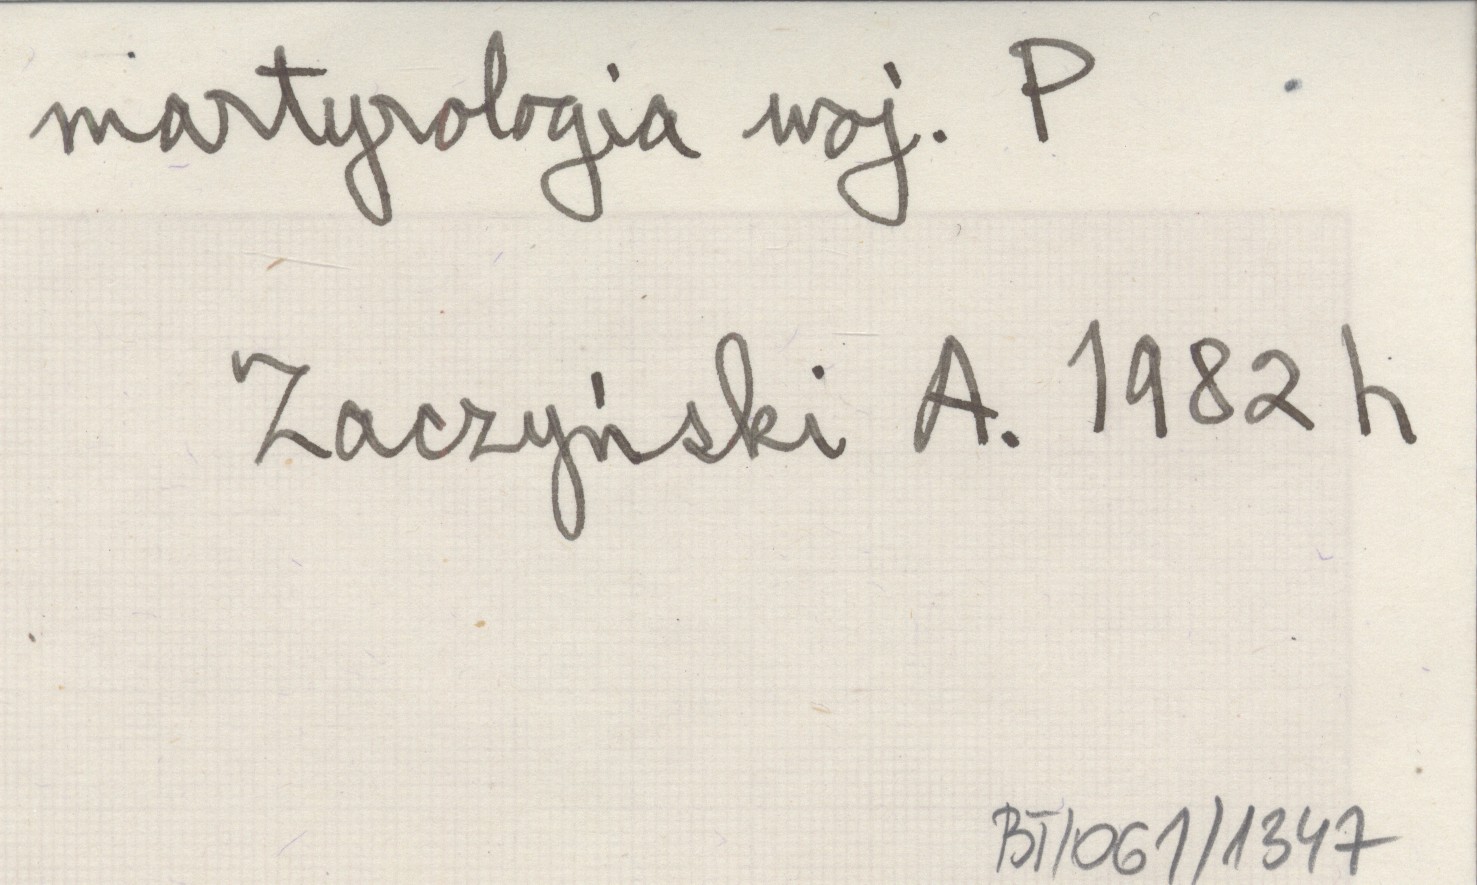 martyrologia woj. P
Zaczyński A. 1982 h
BT/061/1347